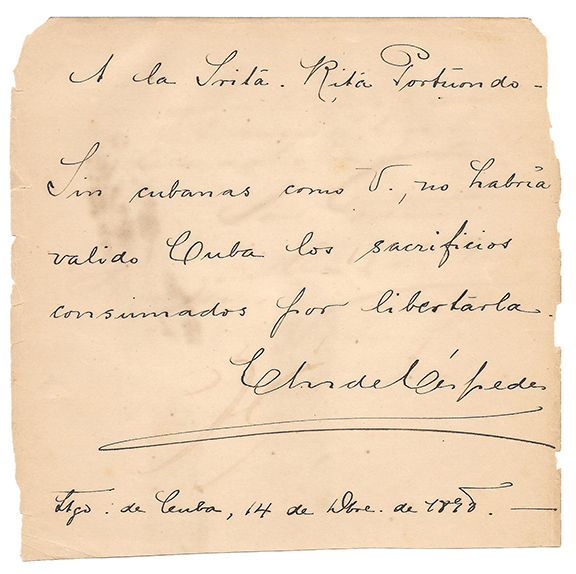 A la Srita. Rita Portuondo -
Sin cubanas como V., no habría
valido Cuba los sacrificios
consumados por libertarla.
CM de Céspedes
Stgo. de Cuba, 14 de Dbre. de 1898. —